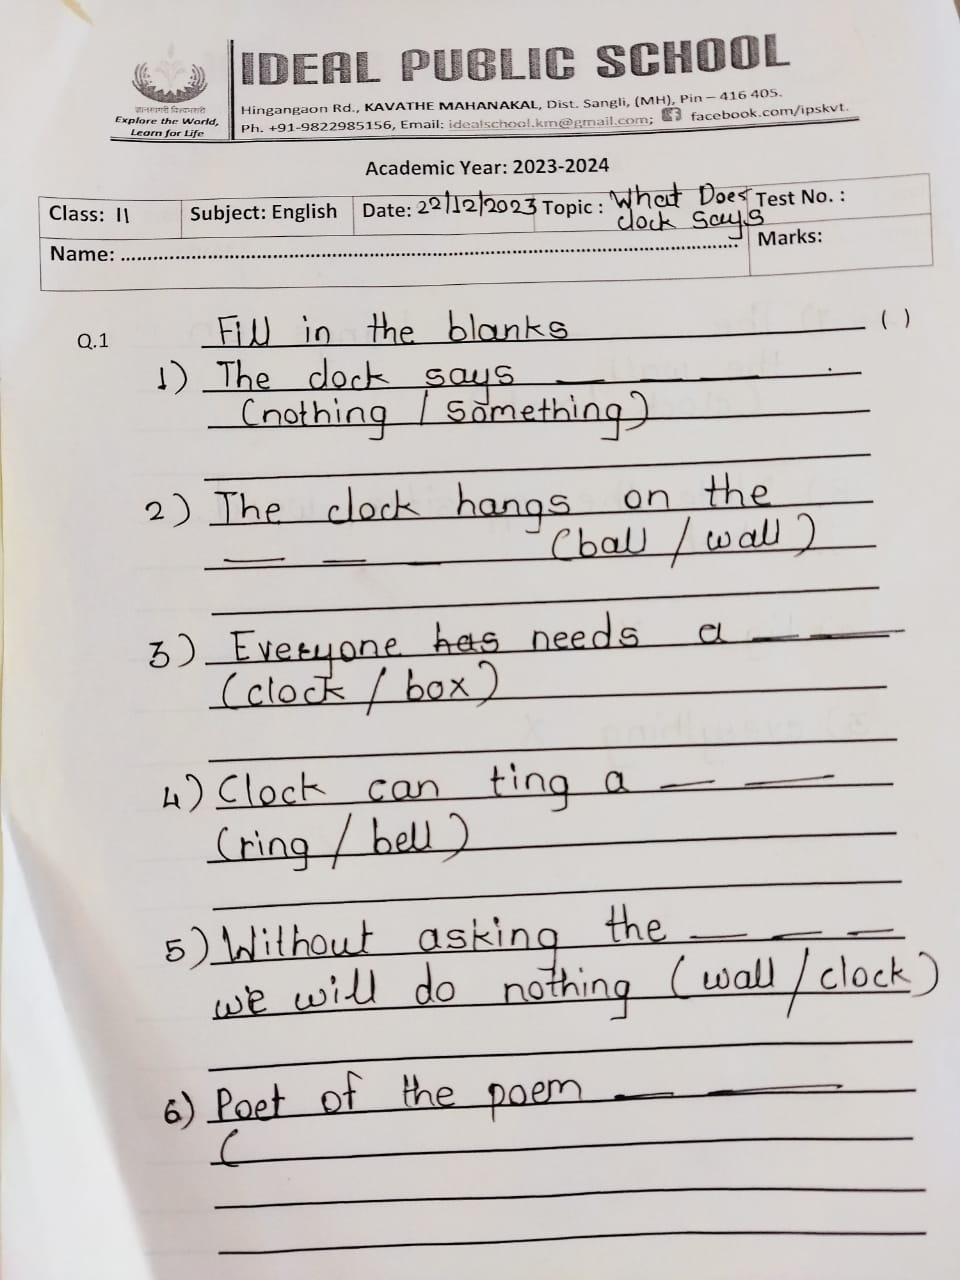 IDEAL PUBLIC SCHOOL
ज्ञानरूपगी विश्वभरारी
Explore the World,
Learn for Life
Hingangaon Rd., KAVATHE MAHANAKAL, Dist. Sangli, (MH), Pin – 416 405.
Ph. +91-9822985156, Email: idealschool.km@gmail.com; facebook.com/ipskvt.
Academic Year: 2023-2024
Class: II Subject: English Date: 22/12/2023 Topic : What Does Test No. :
clock says
Name: Marks:
Q.1 Fill in the blanks ( )
1) The clock says _ _ _ .
(nothing / something)
2) The clock hangs on the
_ _ _ (ball / wall)
3) Everyone has needs a _ _
(clock / box)
4) Clock can ting a _ _
(ring / bell)
5) Without asking the _ _ _
we will do nothing (wall / clock)
6) Poet of the poem _ _
(